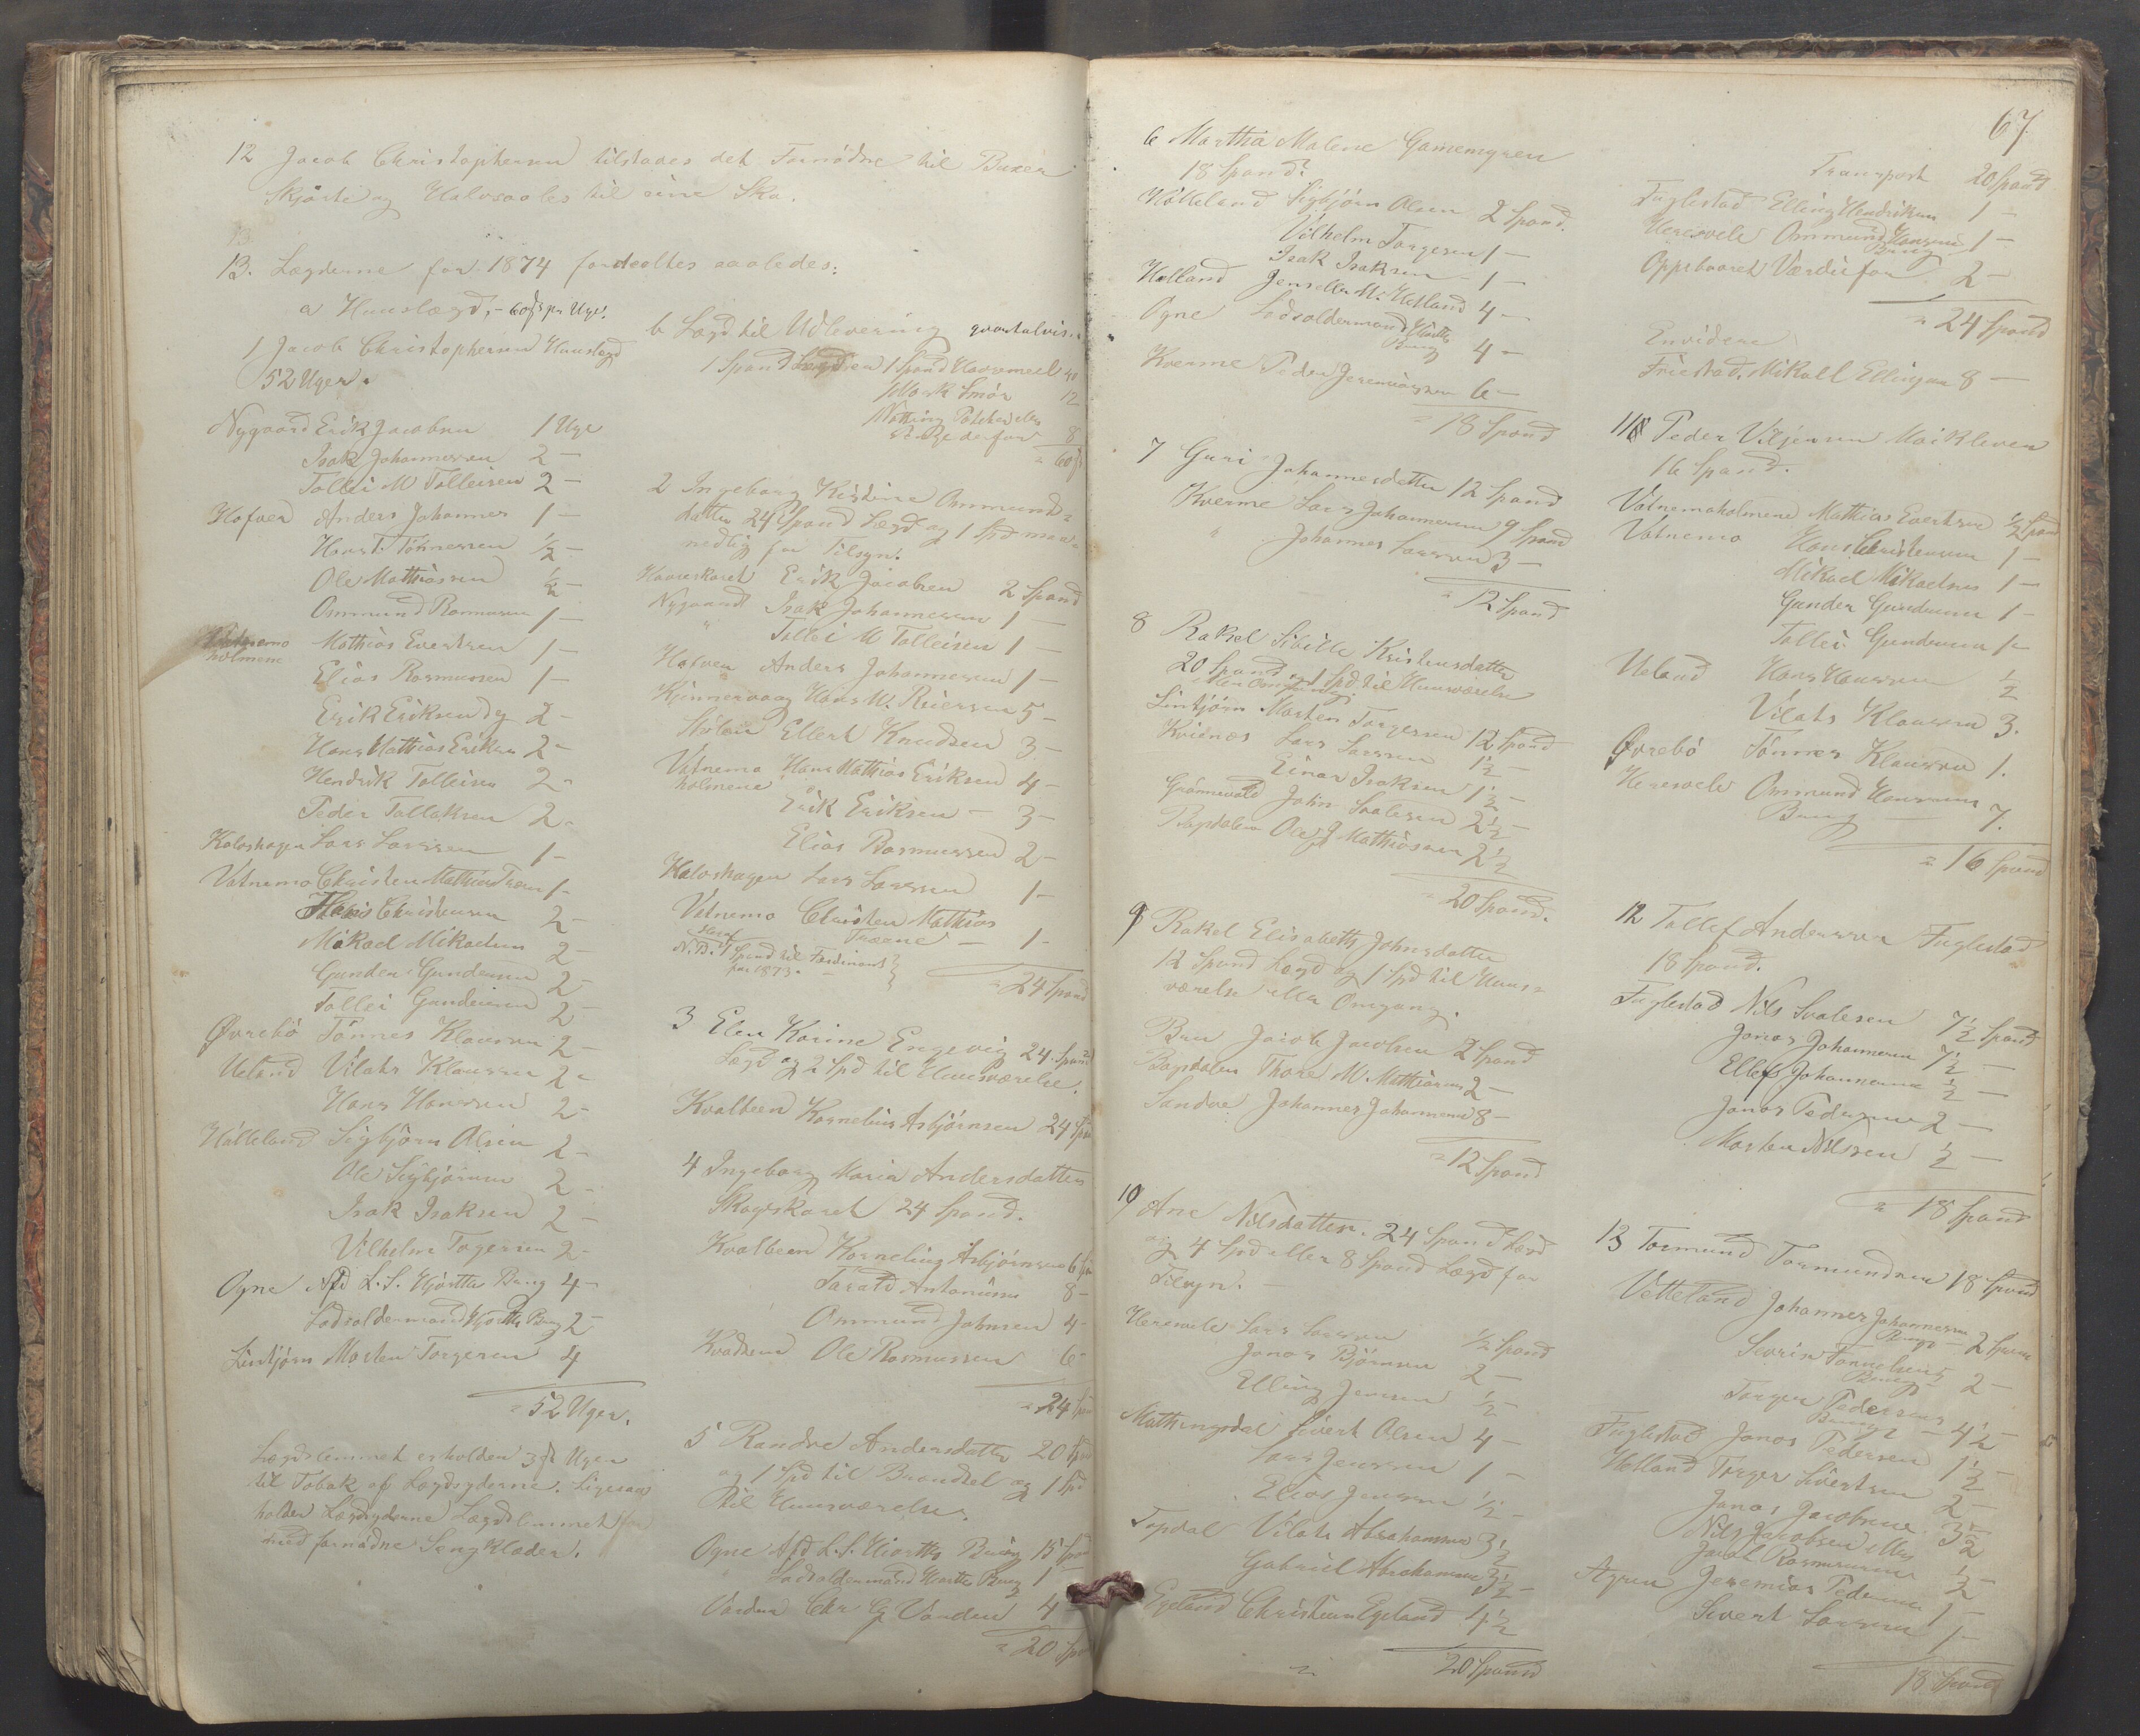 12 Jacob Christophersen tilstaaes det Fornødne til Buxer
Skjorte og Halvsaales til sine Sko.
13. Lægderne for 1874 fordeeltes saaledes:
a Huuslægd, - 60 ß pr Uge.
1 Jacob Christophersen Huuslægd
52 Uger.
Nygaard Erik Jacobsen 1 Uge
Isak Johannessen 2 -
Tollei M Tolleisen 2 -
Hafver Anders Johannes 1 -
Hans T. Tönnessen ½ -
Ole Mathiassen ½ -
Ommund Rasmusen 1 -
Vatnemo
holmene Mathias Evertsen 1 -
Elias Rasmussen 1 -
Erik Eriksen dy 2 -
Hans Mathias Eriksen 2 -
Hendrik Tolleisen 2 -
Peder Tollaksen 2 -
Kaloshagen Lars Larssen 1 -
Vatnemo Christen Mathias Træne 1 -
Hans Christensen 2 -
Mikael Mikaelsen 2 -
Gunder Gundersen 2 -
Tollei Gundersen 2 -
Øvrebö Tönnes Klaussen 2 -
Ueland Vilats Klaussen 2 -
Hans Hanssen 2 -
Hölleland Sigbjörn Olsen 2 -
Ole Sigbjörnsen 2 -
Isak Isaksen 2 -
Vilhelm Torgersen 2 -
Ogne Afd L. S. Hjorths Brug 4 -
Lodsoldermand Hjorths Brug 2 -
Lintjörn Morten Torgersen 4
= 52 Uger.
Lægdslemmet erholder 3 ß Ugen
til Tobak af Lægdsyderne. Ligesaa
holder Lægdsyderne Lægdslemmet
med fornødne Sengklæder.
b Lægd til Udlevering qvartalvis.
1 Spand Lægd er 1 Spand Havremeel 40
1 Mark Smör 12
Potetes eller
derfor 8
= 60 ß
2 Ingeborg Kistine Ommunds=
datter 24 Spand Lægd og 1 Spd maa=
nedlig for Tilsyn.
Erik Jacobsen 2 Spand
Nygaard Isak Johannesen 1 -
" Tollei M Tolleisen 1 -
Hafver Anders Johannesen 1 -
Hans W. Reiersen 5 -
Stölen Ellert Knudsen 3 -
Vatnemo
holmene Hans Mathias Eriksen 4 -
Erik Eriksen - 3 -
Elias Rasmussen 2 -
Kaloshagen Lars Larssen 1 -
Vatnemo Christen Mathias
Træne - 1 -
N.B. Heraf 1 Spand til Ferdinand
for 1873.
= 24 Spand
3 Elen Karine Engevig 24 Spand
Lægd og 2 Spd til Huusværelse.
Kvalbeen Kornelius Asbjörnsen 24 Spa
4 Ingeborg Maria Andersdatter
Skogskaret 24 Spand.
Kvalbeen Kornelius Asbjörnsen 6 Spa
Tarald Antonissen 8 -
Ommund Johnsen 4 -
Ole Rasmussen 6 -
= 24 Spa
5 Randve Andersdatter 20 Spa
og 1 Spd til Brændsel og 1 Spd
til Huusværelse.
Ogne Afd L. S. Hiorths Brug 15 Spa
Lodsoldermand Hiorths Brug 1 -
Varden Chr Eg Varden 4 -
= 20 Spa
67
6 Martha Malene Gamemyren
18 Spand.
Hölleland Sigbjörn Olsen 2 Spand.
Vilhelm Torgersen 1 -
Isak Isaksen - 1 -
Hetland Jens eller M. Hetland 4 -
Ogne Lodsoldermand Hiorths
Brug 4 -
Kverme Peder Jeremiassen 6 -
= 18 Spand
7 Guri Johannesdatter 12 Spand
Kverme Lars Johannesen 9 Spand
" Johannes Larssen 3 -
= 12 Spand
8 Rakel Sibille Kristensdatter
20 Spand og 1 Spd til Huusværelse
eller Omgang.
Lintjörn Morten Torgersen 12 Spand
Kvienes Lars Larssen 1½ -
Einar Isaksen 1½ -
Grönnevold John Svalesen 2½ -
Bagdalen Ole J Mathiasen 2½
= 20 Spand.
9 Rakel Elisabeth Johnsdatter
12 Spand Lægd og 1 Spd til Huus=
værelse eller Omgang.
Brue Jacob Jacobsen 2 Spand
Bagdalen Thore M. Mathiasen 2 -
Sandve Johannes Johannesen 8 -
= 12 Spand
10 Ane Nilsdatter. 24 Spand Lægd
og 4 Spd eller 8 Spand Lægd for
Tilsyn.
Heresvele Lars Larssen ½ Spand
Jonas Björnsen 2 -
Elling Jenssen ½ -
Mathingsdal Sivert Olsen 4 -
Lars Jenssen 1 -
Elias Jenssen ½ -
Topdal Vilats Abrahamsen 3½
Gabriel Abrahamsen 3½ -
Egeland Christian Egeland 4½
= 20 Spand
Transport 20 Spand
Fuglestad Elling Hendriksen 1 -
Heresvele Ommund Hanssens
Brug 1 -
Oppebaaret Værdi for 2 -
= 24 Spand
Envidere
Friestad, Mikall Ellingsen 8 -
11 Peder Viljensen Maikleven
16 Spand.
Vatnemoholmene Mathias Evertsen ½ Spand
Vatnemo Hans Christensen 1 -
Mikael Mikaelsen 1 -
Gunder Gundersen 1 -
Tollei Gundersen 1 -
Ueland Hans Hanssen ½
Vilats Klaussen 3.
Øvrebö Tönnes Klaussen 1.
Heresvele Ommund Hanssens
Brug 7.
= 16 Spand
12 Tollef Anderssen Fuglestad
18 Spand.
Fuglestad Nils Svalesen 7½ Spand
Jonas Johannesen 7½ -
Ellef Johannesen ½ -
Jonas Pedersen 2 -
Morten Nilssen ½ -
= 18 Spand
13 Tormund Tormundsen 18 Spand
Vetteland Johannes Johannesens
Brug - 2 Spand
Sivrin Tønnesens
Brug 2 -
Torger Pedersens
Brug - 4½
Fuglestad Jonas Pedersen 1½ -
Hetland Torger Sivertsen 2 -
Jonas Jacobsen 3 -
Nils Jacobsen eller
Jacob Rasmussen ½ -
Jeremias Pedersen 1 -
Sivert Larssen 1 -
18 Spand